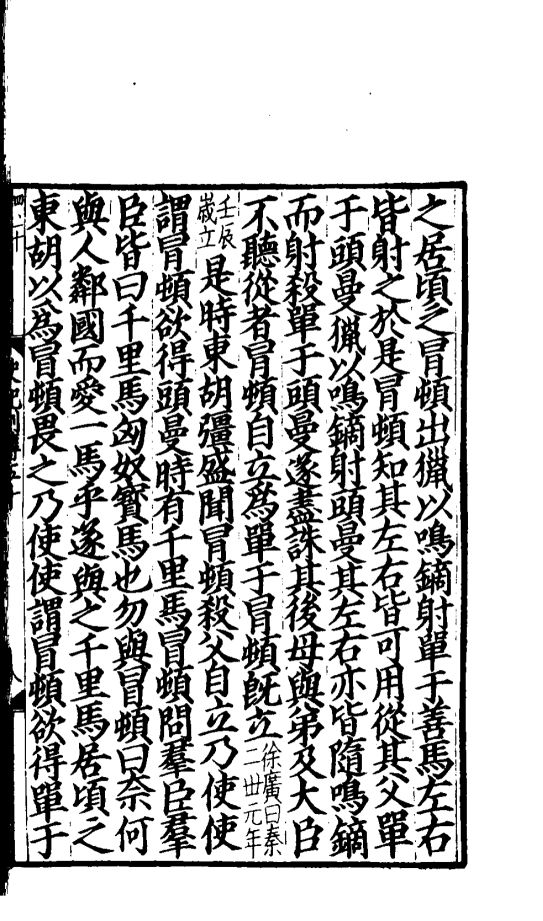 之居頃之冒頓出獵以鳴鏑射單于善馬左右
皆射之於是冒頓知其左右皆可用從其父單
于頭曼獵以鳴鏑射頭曼其左右亦皆隨鳴鏑
而射殺單于頭曼遂盡誅其後母與弟及大臣
不聽從者冒頓自立爲單于冒頓旣立徐廣曰秦二丗元年
壬辰歲立是時東胡彊盛聞冒頓殺父自立乃使使
謂冒頓欲得頭曼時有千里馬冒頓問羣臣羣
臣皆曰千里馬匈奴寶馬也勿與冒頓曰柰何
與人鄰國而愛一馬乎遂與之千里馬居頃之
東胡以爲冒頓畏之乃使使謂冒頓欲得單于